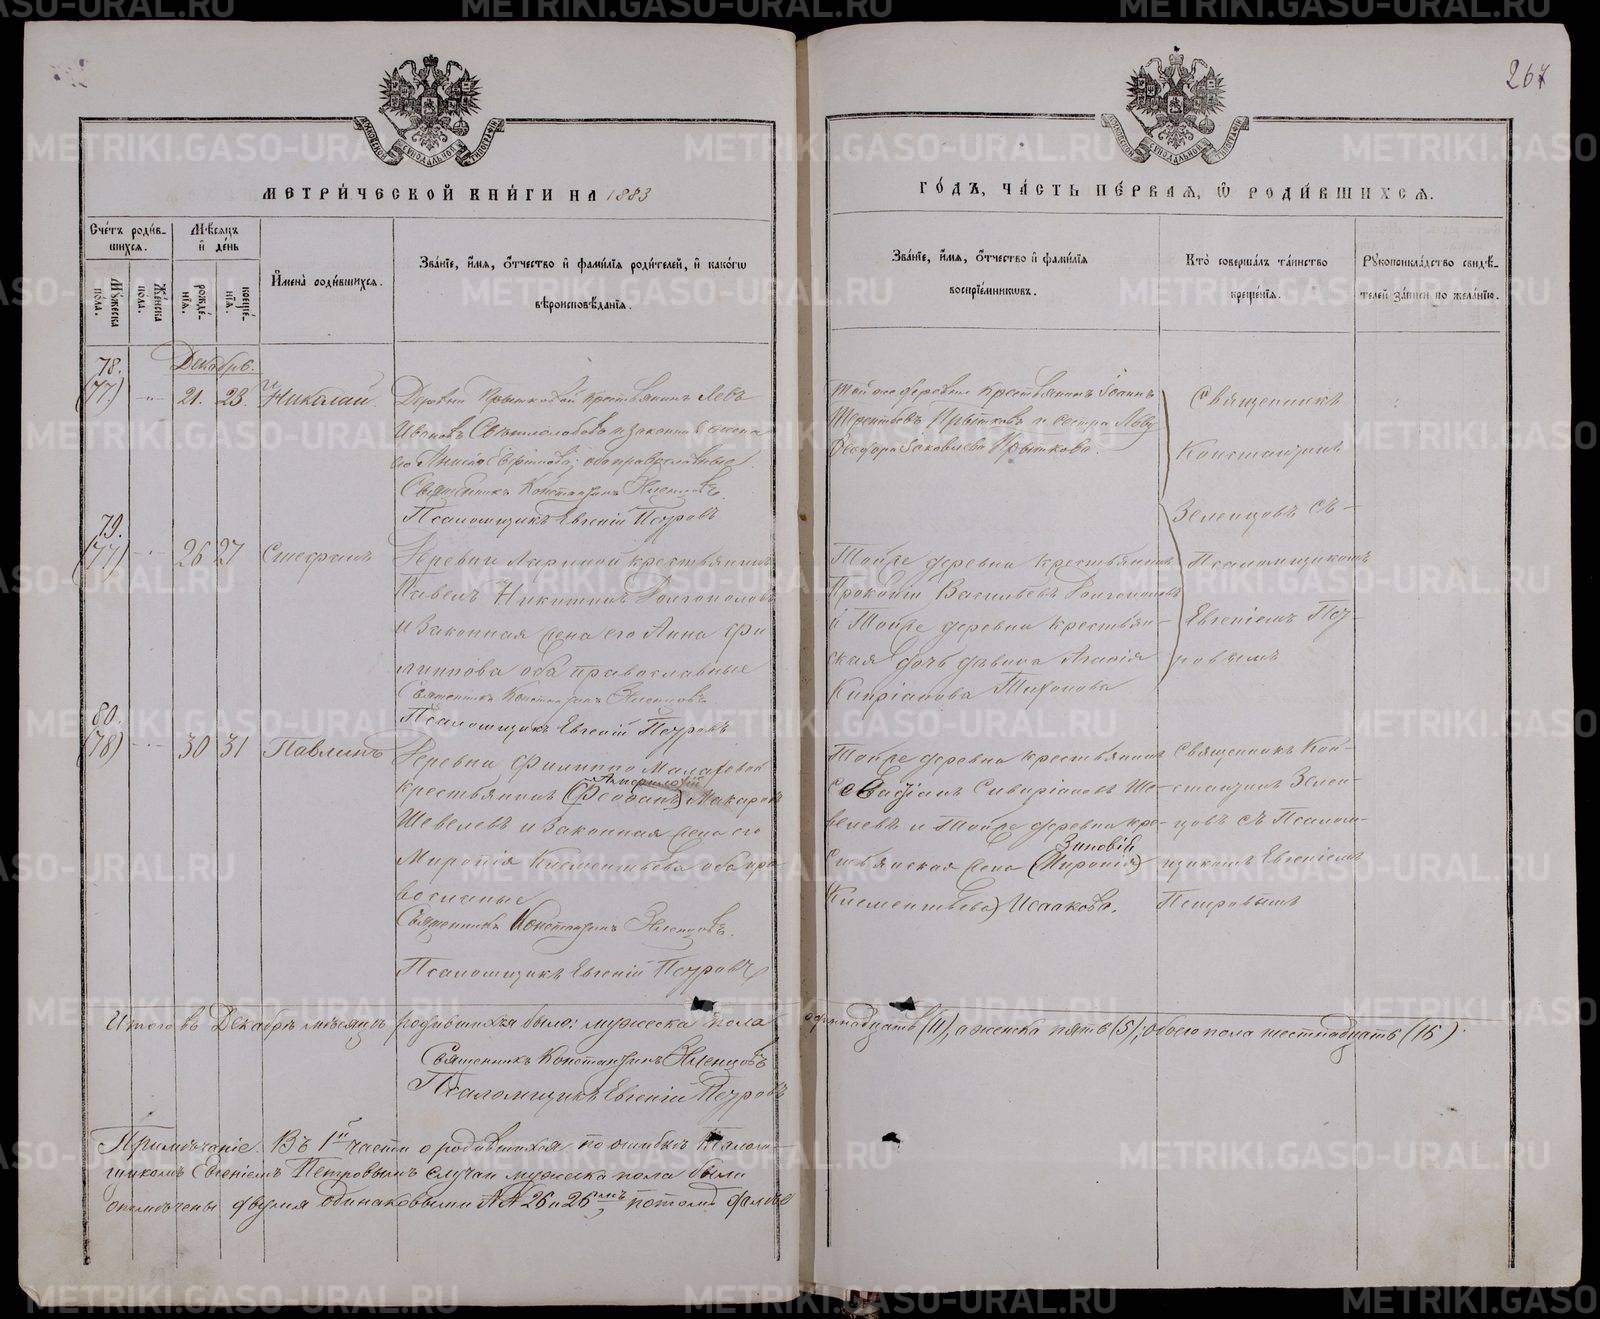 267
МЕТРИ́ЧЕСКОЙ КНИ́ГИ НА 1883
ГО́ДЪ, ЧА́СТЬ ПЕ́РВАЯ, Ѿ РОДИ́ВШИХСѦ.
Сче́тъ роди́в-
шихся.
Мѣ́сяцъ
и҆ де́нь
Му́жеска
по́ла.
Же́нска
по́ла.
рожде́-
нїя.
креще́-
нїя.
И҆мена̀ роди́вшихся.
Зва́нїе, и҆́мя, ѻ҆́тчество и҆ фами́лїя роди́телей, и҆ како́гѡ
вѣроисповѣ́данїя.
Зва́нїе, и҆́мя, ѻ҆́тчество и҆ фами́лїя
воспрїе́мниковъ.
Кто̀ соверша́лъ та́инство
креще́нїя.
Рꙋкоприкла́дство свидѣ́-
телей за́писи по жела́нїю.
Декабрь.
78.
(77.) 21. 23. Николай.
Деревни Прытковой крестьянинъ Левъ
Ивановъ и законная жена
его православные
Священникъ Константинъ Зеленцовъ.
Псаломщикъ Евгеній Петровъ
Той же деревни крестьянинъ Іоаннъ
Прытковъ и сестра
Яковлева Прыткова.
Священникъ
Константинъ
Зеленцовъ съ
Псаломщикомъ
Евгеніемъ Пет-
ровымъ
79.
(77) 26 27 Стефанъ
Деревни Лариной крестьянинъ
Павелъ Никитинъ Долгополовъ
и законная жена его Анна Фи-
липпова оба православные
Священникъ Константинъ Зеленцовъ
Псаломщикъ Евгеній Петровъ
Тойже деревни крестьянинъ
Прокопій Васильевъ Долгополовъ
и Тойже деревни крестьян-
ская дочь дѣвица Агапія
Кипріанова Тихонова
80.
(78) 30 31 Павлинъ
Деревни Филиппо Малаховой
крестьянинъ (Феофанъ) Макаровъ
Шевелевъ и законная жена его
Миропія Климентьева оба пра-
вославные
Священникъ Константинъ Зеленцовъ.
Псаломщикъ Евгеній Петровъ
Тойже деревни крестьянинъ
Севастіанъ Ше-
велевъ и Тойже деревни кре-
Зиновія
стьянская жена (Миропія)
Климентьева) Исаакова.
Священникъ Кон-
стантинъ Зелен-
цовъ съ Псалом-
щикомъ Евгеніемъ
Петровымъ
Итого въ Декабрѣ мѣсяцѣ родившихся было: мужеска пола
одиннадцать (11), а женска пять (5); обоего пола шестнадцать (16).
Священникъ Константинъ Зеленцовъ
Псаломщикъ Евгеній Петровъ
Примѣчаніе. Въ 1й части о родившихся по ошибкѣ Псалом-
щикомъ Евгеніемъ Петровымъ случаи мужеска пола были
отмѣчены двумя одинаковыми №№ 26 и 26мъ, потомъ далѣе